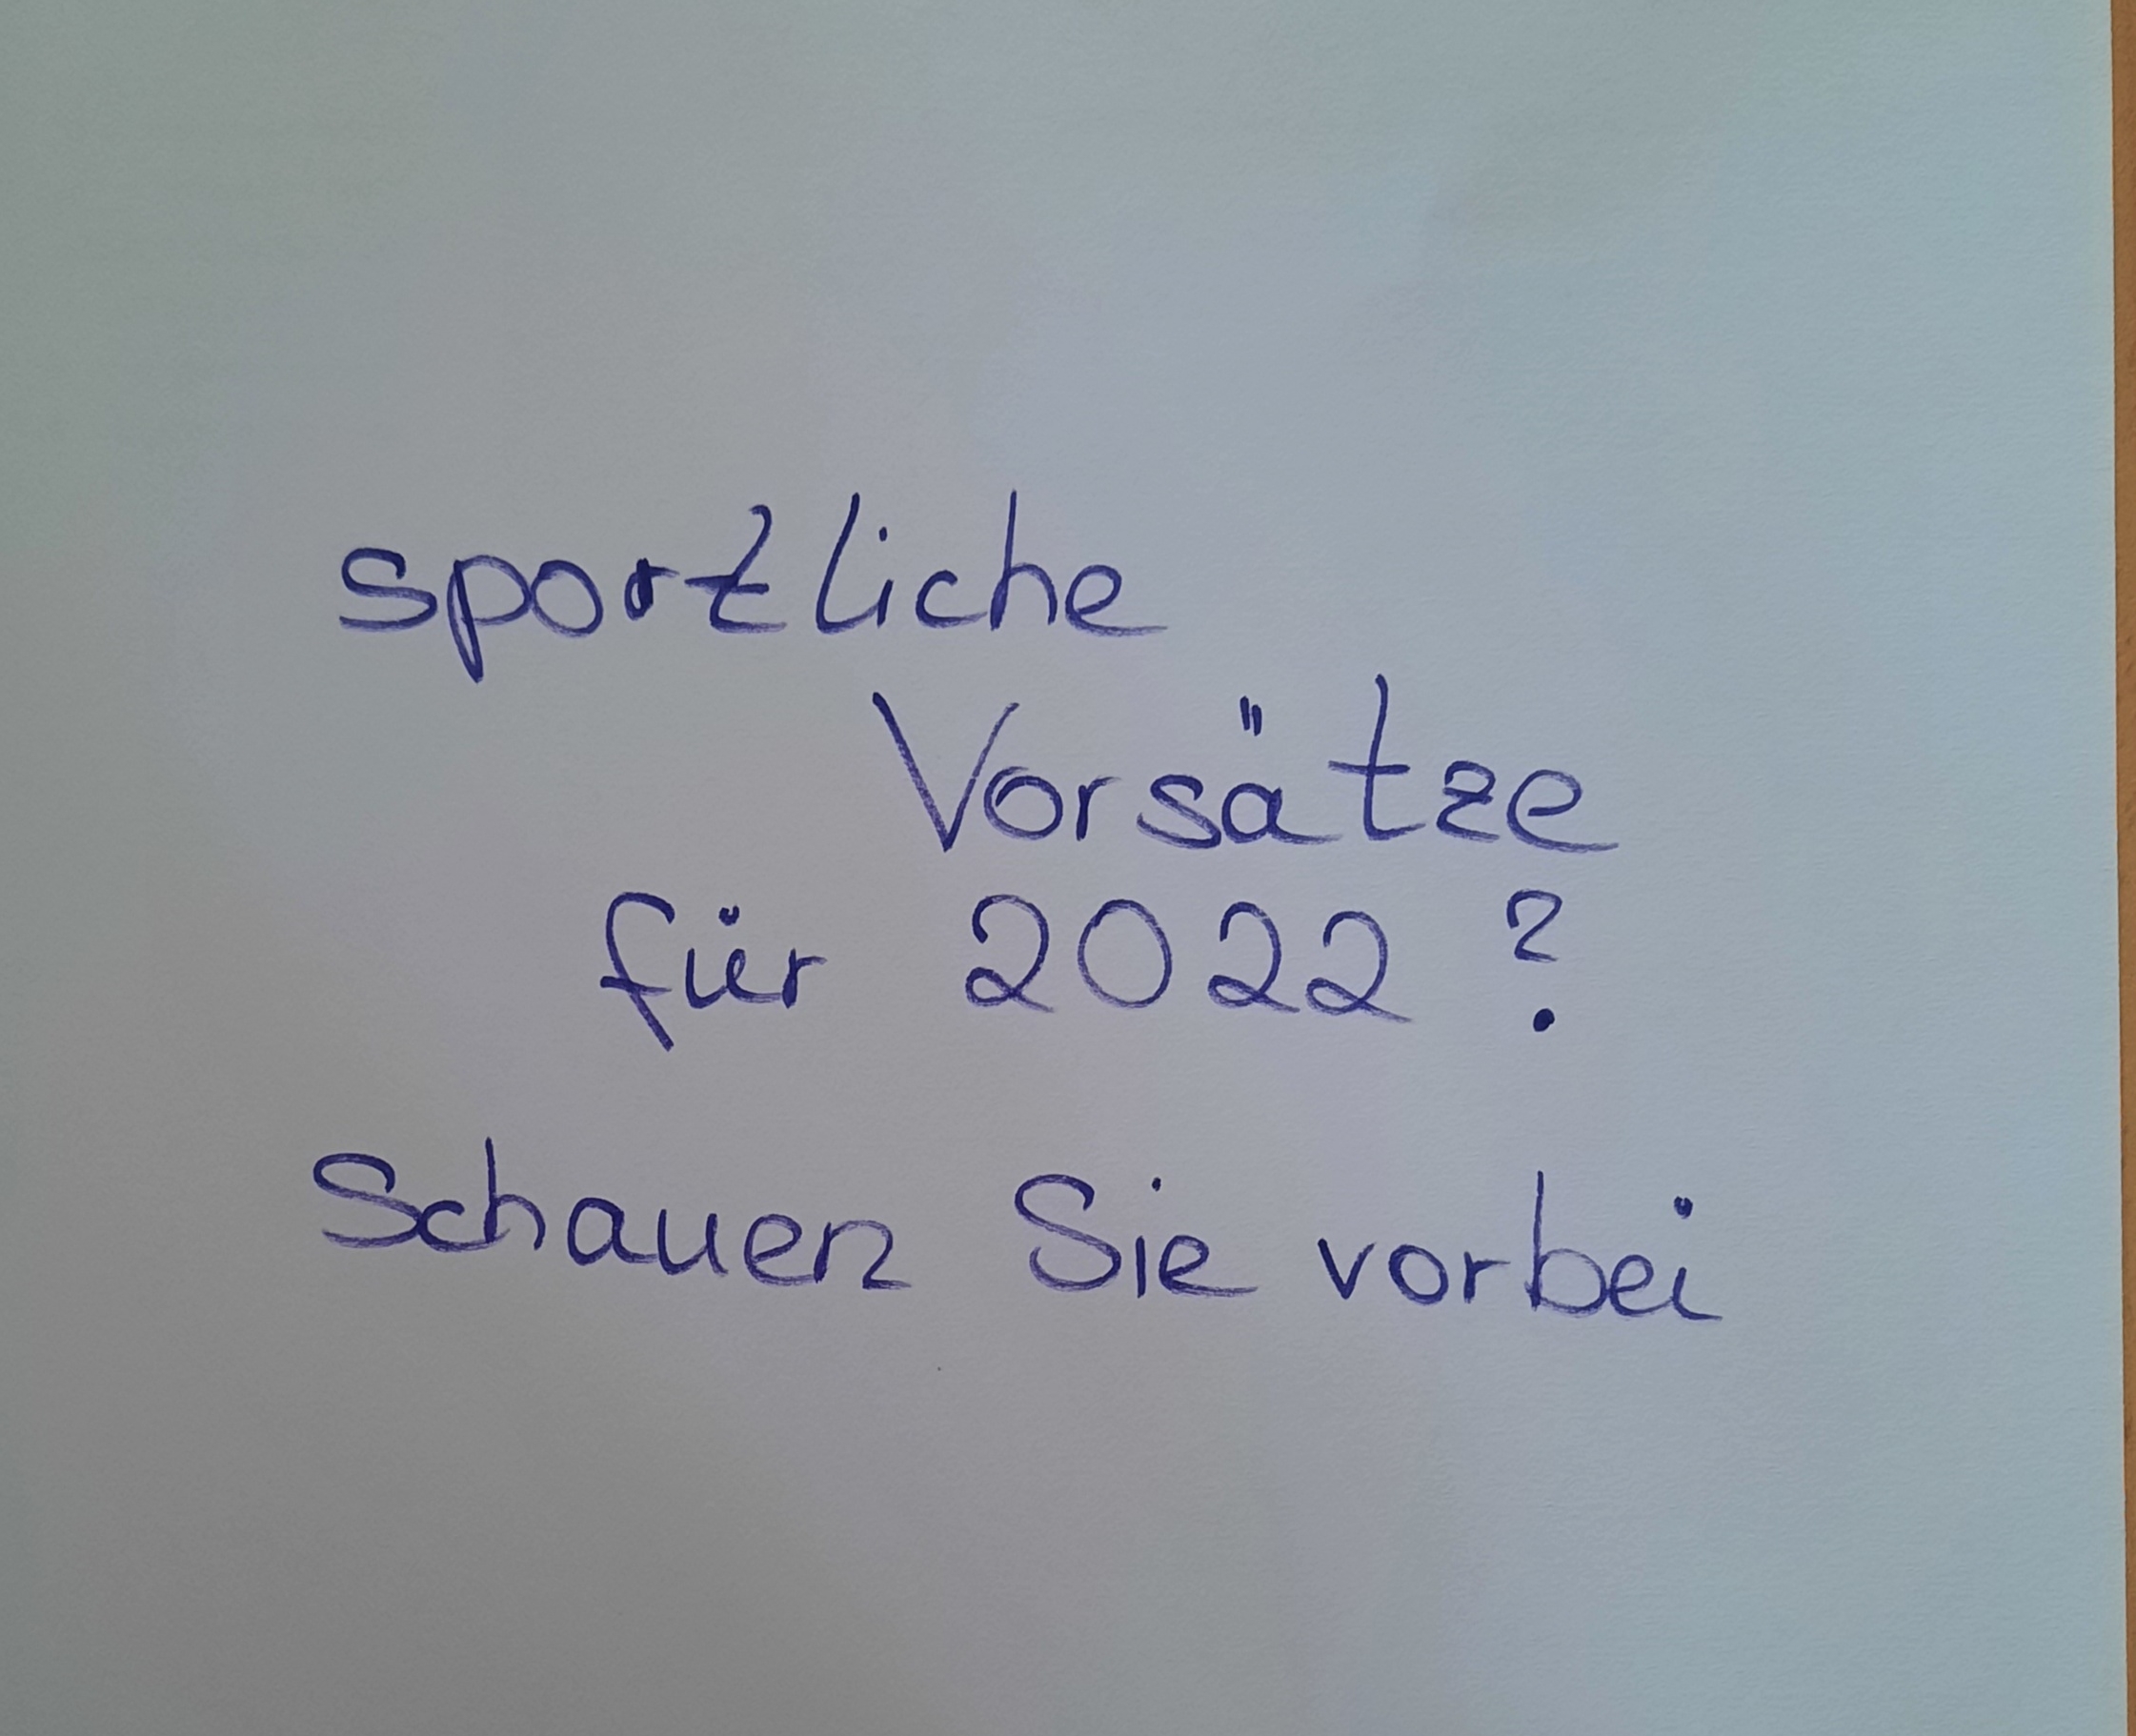 sportliche
Vorsätze
für 2022?
Schauen Sie vorbei